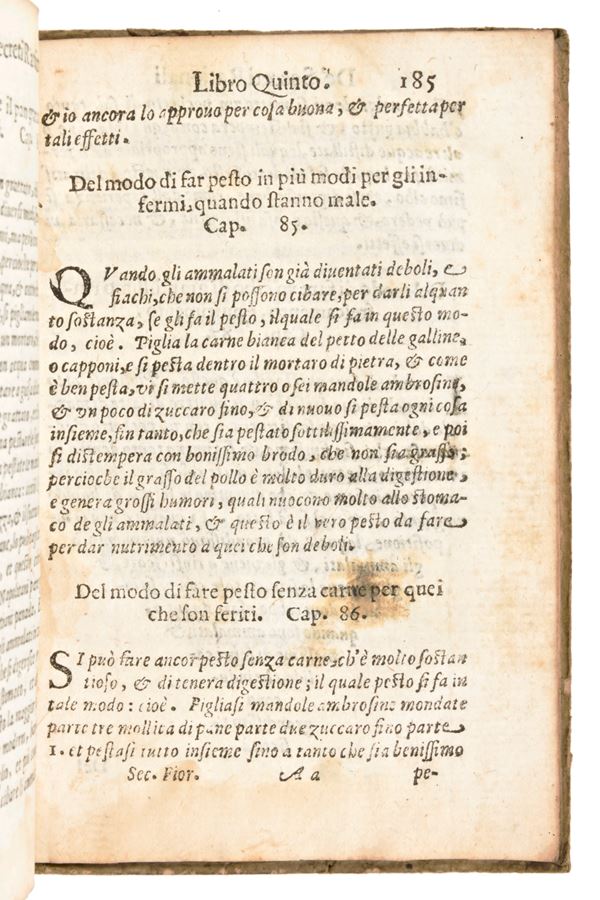 Libro Quinto. 185
& io ancora lo approuo per cosa buona, & perfetta per
tali effetti.
Del modo di far pesto in più modi per gli in-
fermi, quando stanno male.
Cap. 85.
QVando gli ammalati son già diuentati deboli, e
fiachi, che non si possono cibare, per darli alquan
to sostanza, se gli fa il pesto, ilquale si fa in questo mo-
do, cioè. Piglia la carne bianca del petto delle galline,
o capponi, e si pesta dentro il mortaro di pietra, & come
è ben pesta, vi si mette quattro o sei mandole ambrosine,
& vn poco di zuccaro fino, & di nuouo si pesta ogni cosa
insieme, fin tanto, che sia pestato sottilissimamente, e poi
si distempera con bonissimo brodo, che non sia grasso;
percioche il grasso del pollo è molto duro alla digestione,
e genera grossi humori, quali nuocono molto allo stoma-
co degli ammalati, & questo è il vero pesto da fare
per dar nutrimento a quei che son deboli.
Del modo di fare pesto senza carne per quei
che son feriti. Cap. 86.
SI può fare ancor pesto senza carne, ch'è molto sostan
tioso, & di tenera digestione; il quale pesto si fa in
tale modo: cioè. Pigliasi mandole ambrosine mondate
parte tre mollica di pane parte due zuccaro fino parte
1. et pestasi tutto insieme sino a tanto che sia benissimo
Sec. Fior. A a pe-